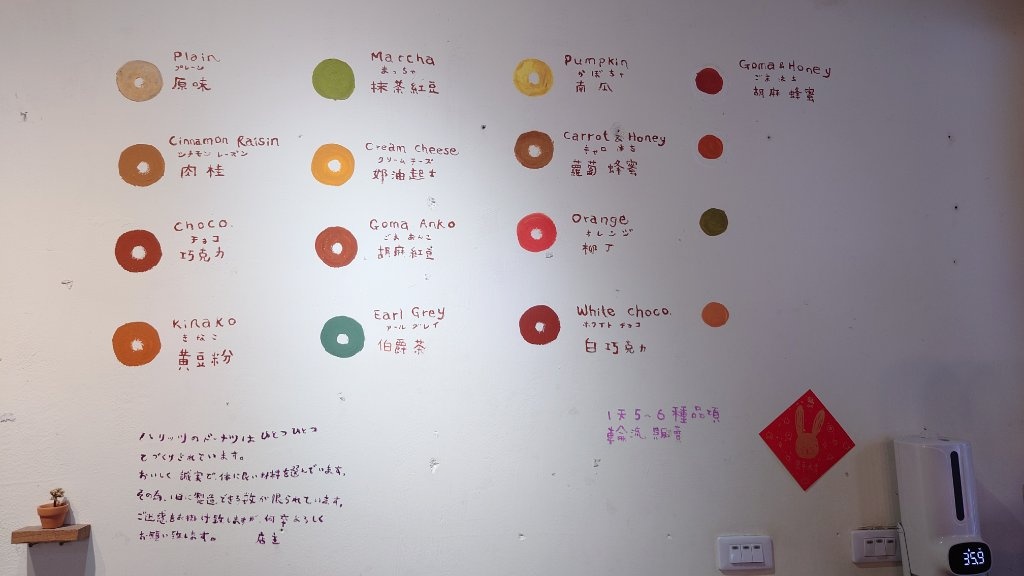 Plain
プレーン
原味
Cinnamon Raisin
シナモン レーズン
肉桂
Choco.
チョコ
巧克力
Kinako
きなこ
黄豆粉
Marcha
まっちゃ
抹茶紅豆
Cream cheese
クリーム チーズ
奶油起士
Goma Anko
ごま あんこ
胡麻紅豆
Earl Grey
アールグレイ
伯爵茶
Pumpkin
かぼちゃ
南瓜
Carrot & Honey
キャロ はち
蘿蔔 蜂蜜
Orange
オレンジ
柳丁
White choco.
ホワイト チョコ
白巧克力
Goma & Honey
ごま はち
胡麻 蜂蜜
ハリッツのドーナツは ひとつひとつ
てづくりされています。
おいしく 誠実で 体に良い材料を選んでいます。
その為、1日に製造できる数が限られています。
ご迷惑をお掛け致しますが、何卒よろしく
お願い致します。 店主
1天5~6種品項
輪流 販賣
35.9